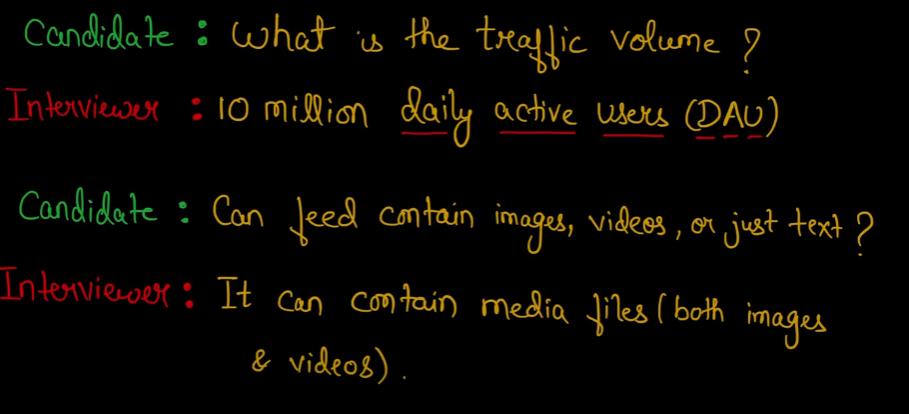 Candidate : What is the traffic volume ?
Interviewer : 10 million daily active users (DAU)
Candidate : Can feed contain images, videos, or just text ?
Interviewer : It can contain media files (both images
& videos).